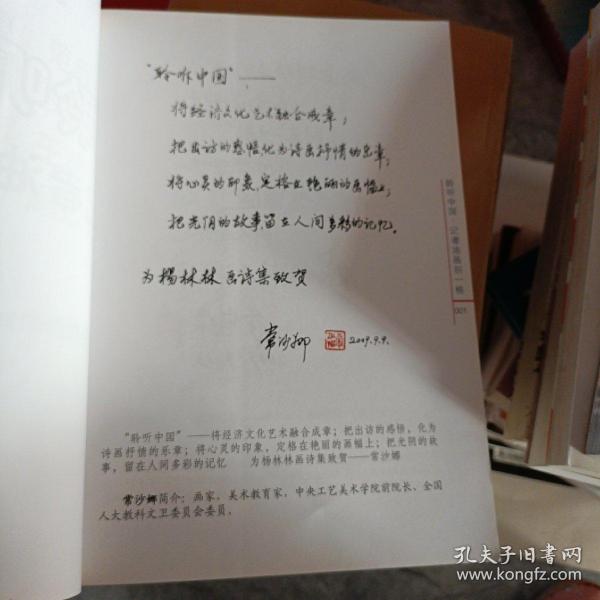 “聆听中国”——
将经济文化艺术融合成章；
把出访的感悟，化为诗画抒情的乐章；
将心灵的印象，定格在艳丽的画幅上；
把光阴的故事，留在人间多彩的记忆。
为杨林林画诗集致贺
常沙娜
2009.9.9.
聆听中国
001
“聆听中国”——将经济文化艺术融合成章；把出访的感悟，化为
诗画抒情的乐章；将心灵的印象，定格在艳丽的画幅上；把光阴的故
事，留在人间多彩的记忆 为杨林林画诗集致贺——常沙娜
常沙娜简介：画家，美术教育家，中央工艺美术学院前院长、全国
人大教科文卫委员会委员。
孔夫子旧书网
www.kongfz.com